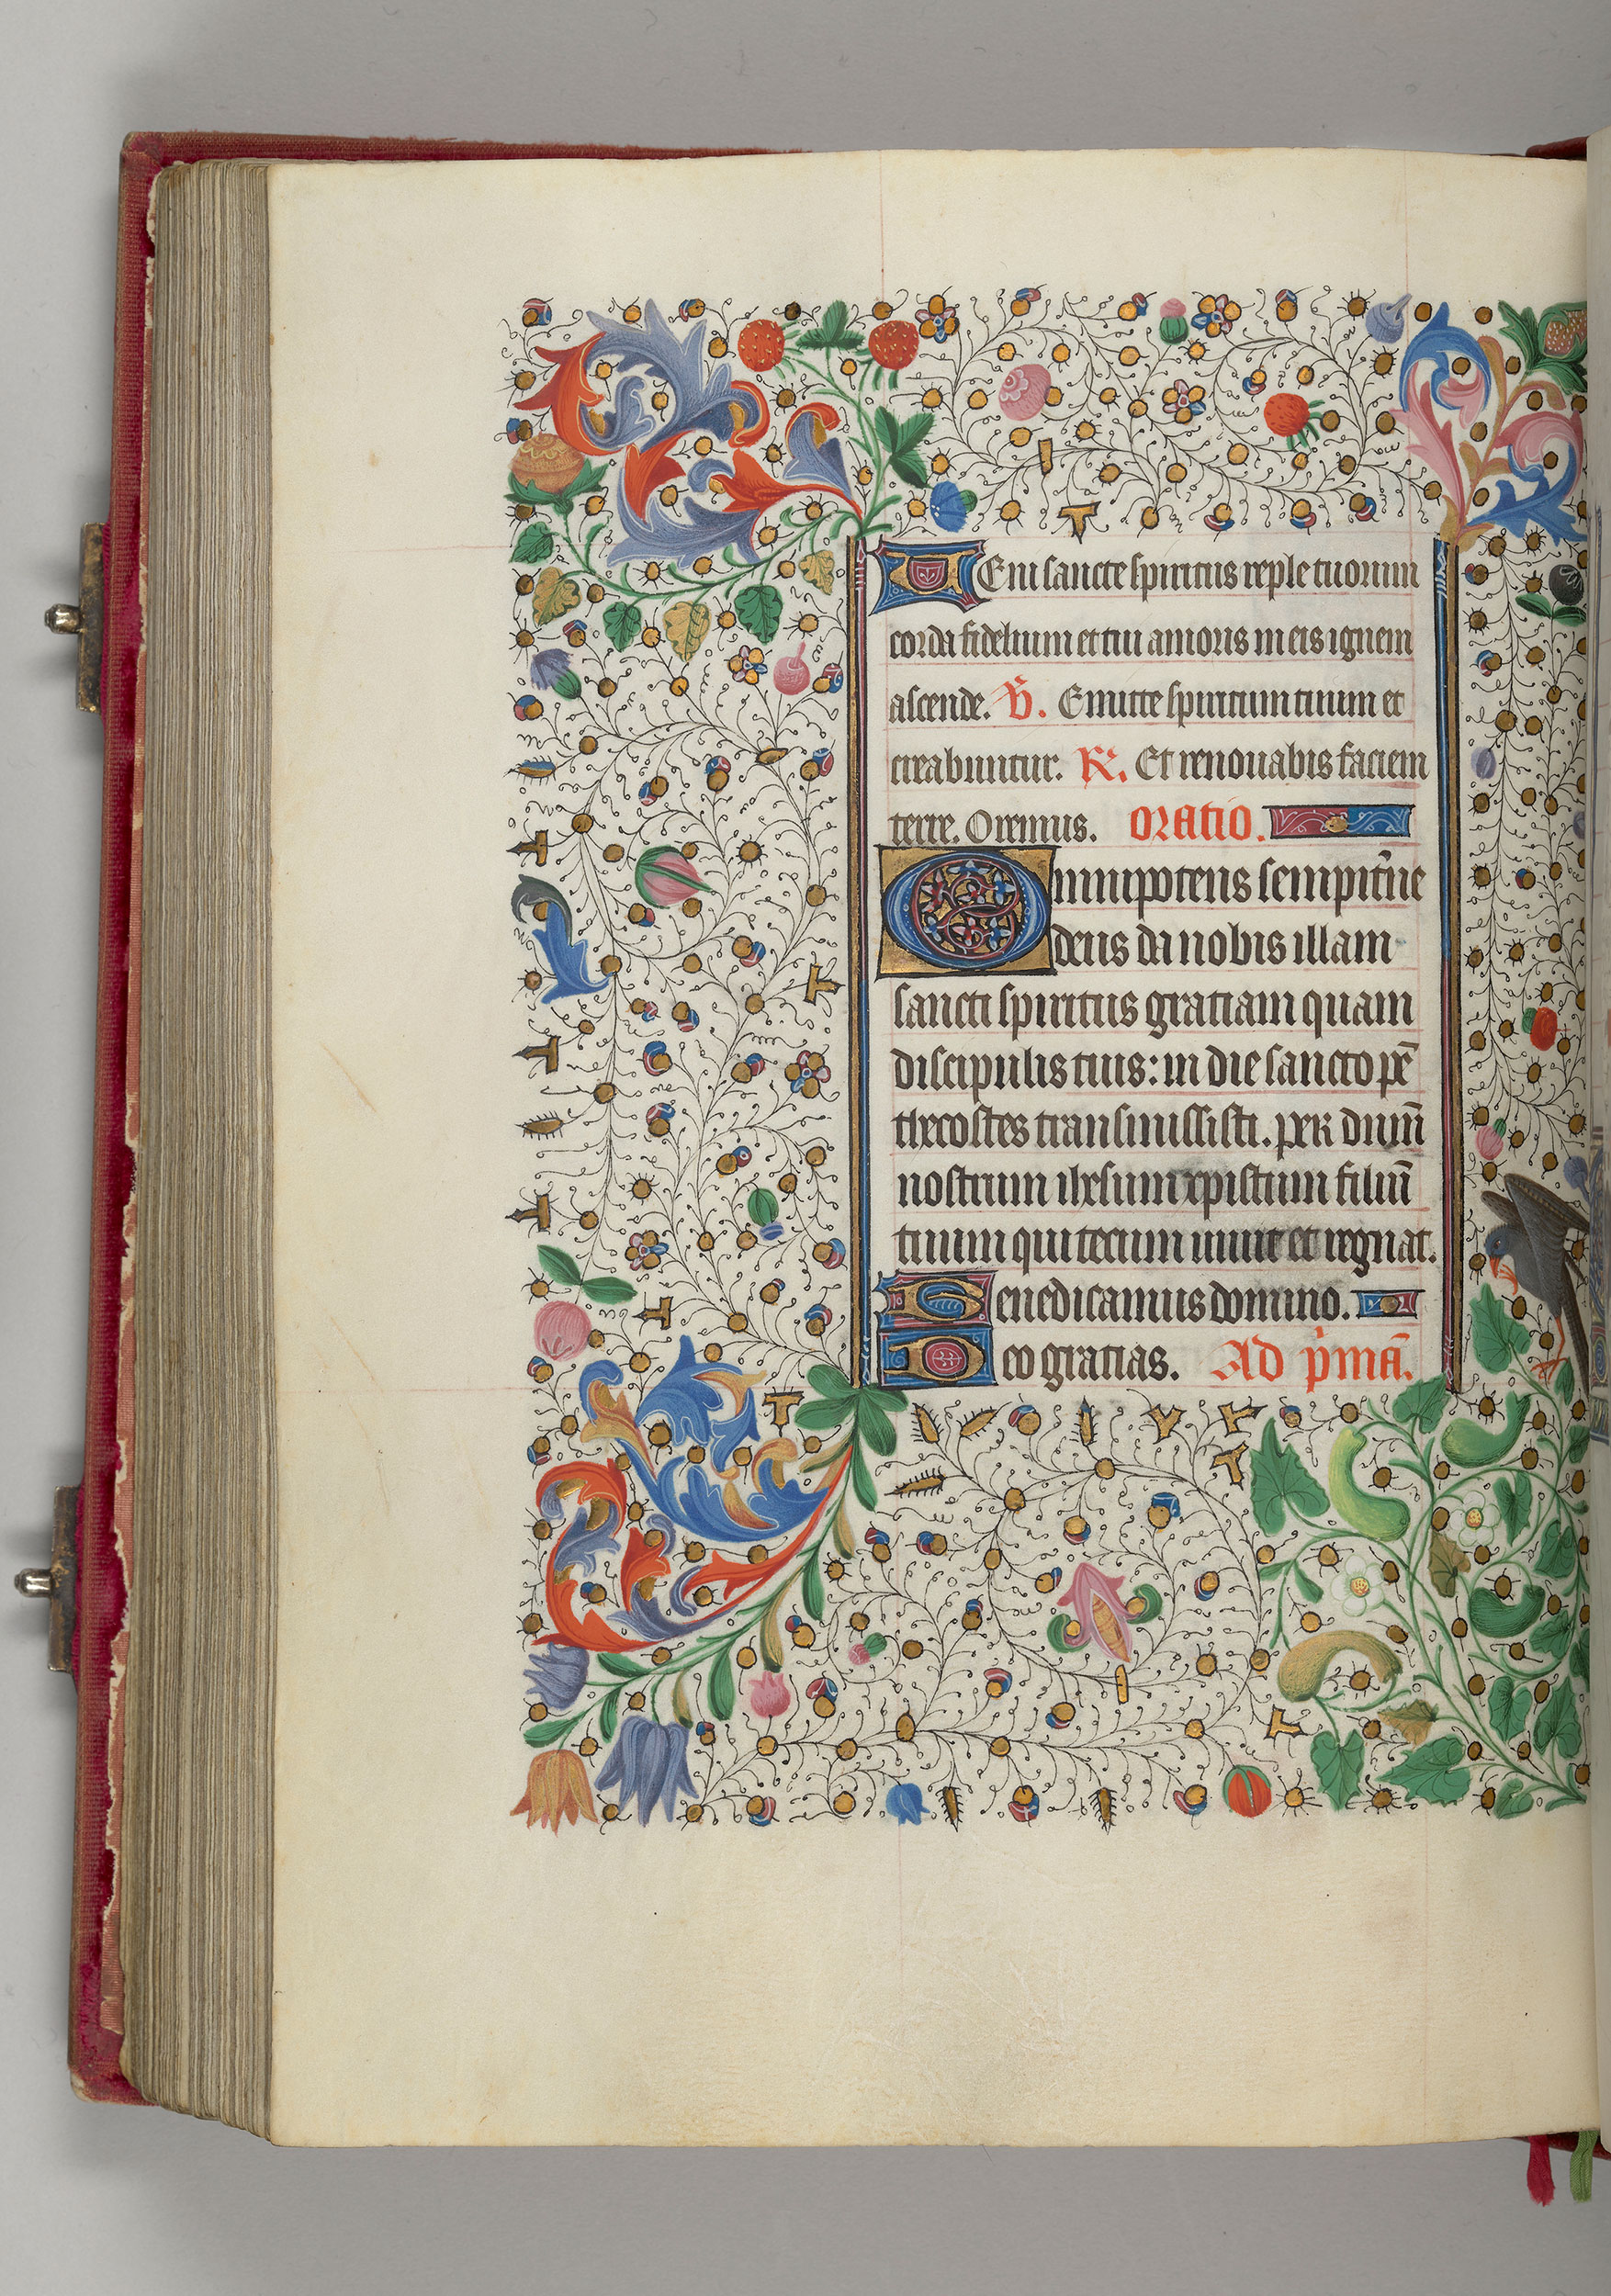 VEni sancte spiritus reple tuorum
corda fidelium et tui amoris in eis ignem
ascende. V̄. Emitte spiritum tuum et
creabuntur. R. Et renouabis faciem
terre. Oremus. ORATIO.
Omnipotens sempit̄ne
deus da nobis illam
sancti spiritus gratiam quam
discipulis tuis: in die sancto pē
thecostes transmissisti. per dnum̄
nostrum ihesum xpistum filiū
tuum qui tecum uiuit et regnat.
Benedicamus domino.
Deo gratias. Ad p̄mā.